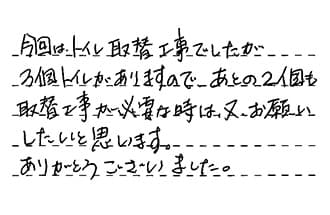 今回は、トイレ取替工事でしたが
3個トイレがありますので、あとの2個も
取替工事が必要な時は、又、お願い
したいと思います。
ありがとうございました。